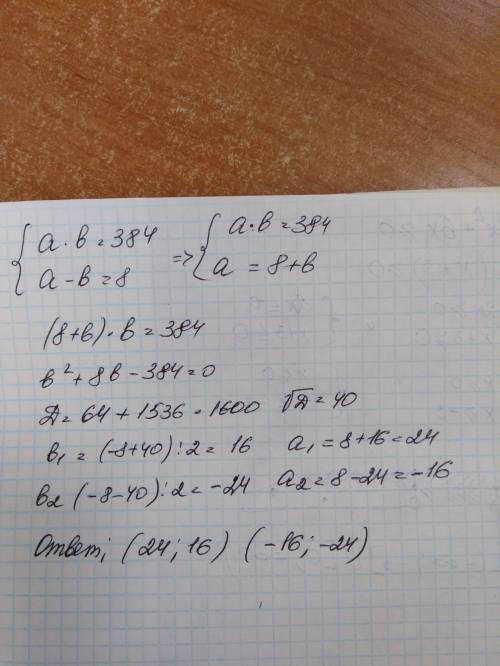 { a · b = 384 => { a · b = 384
{ a - b = 8 { a = 8 + b
(8+b) · b = 384
b² + 8b - 384 = 0
D = 64 + 1536 = 1600 √D = 40
b₁ = (-8+40) : 2 = 16 a₁ = 8+16 = 24
b₂ (-8-40) : 2 = -24 a₂ = 8-24 = -16
Ответ; (24; 16) (-16; -24)